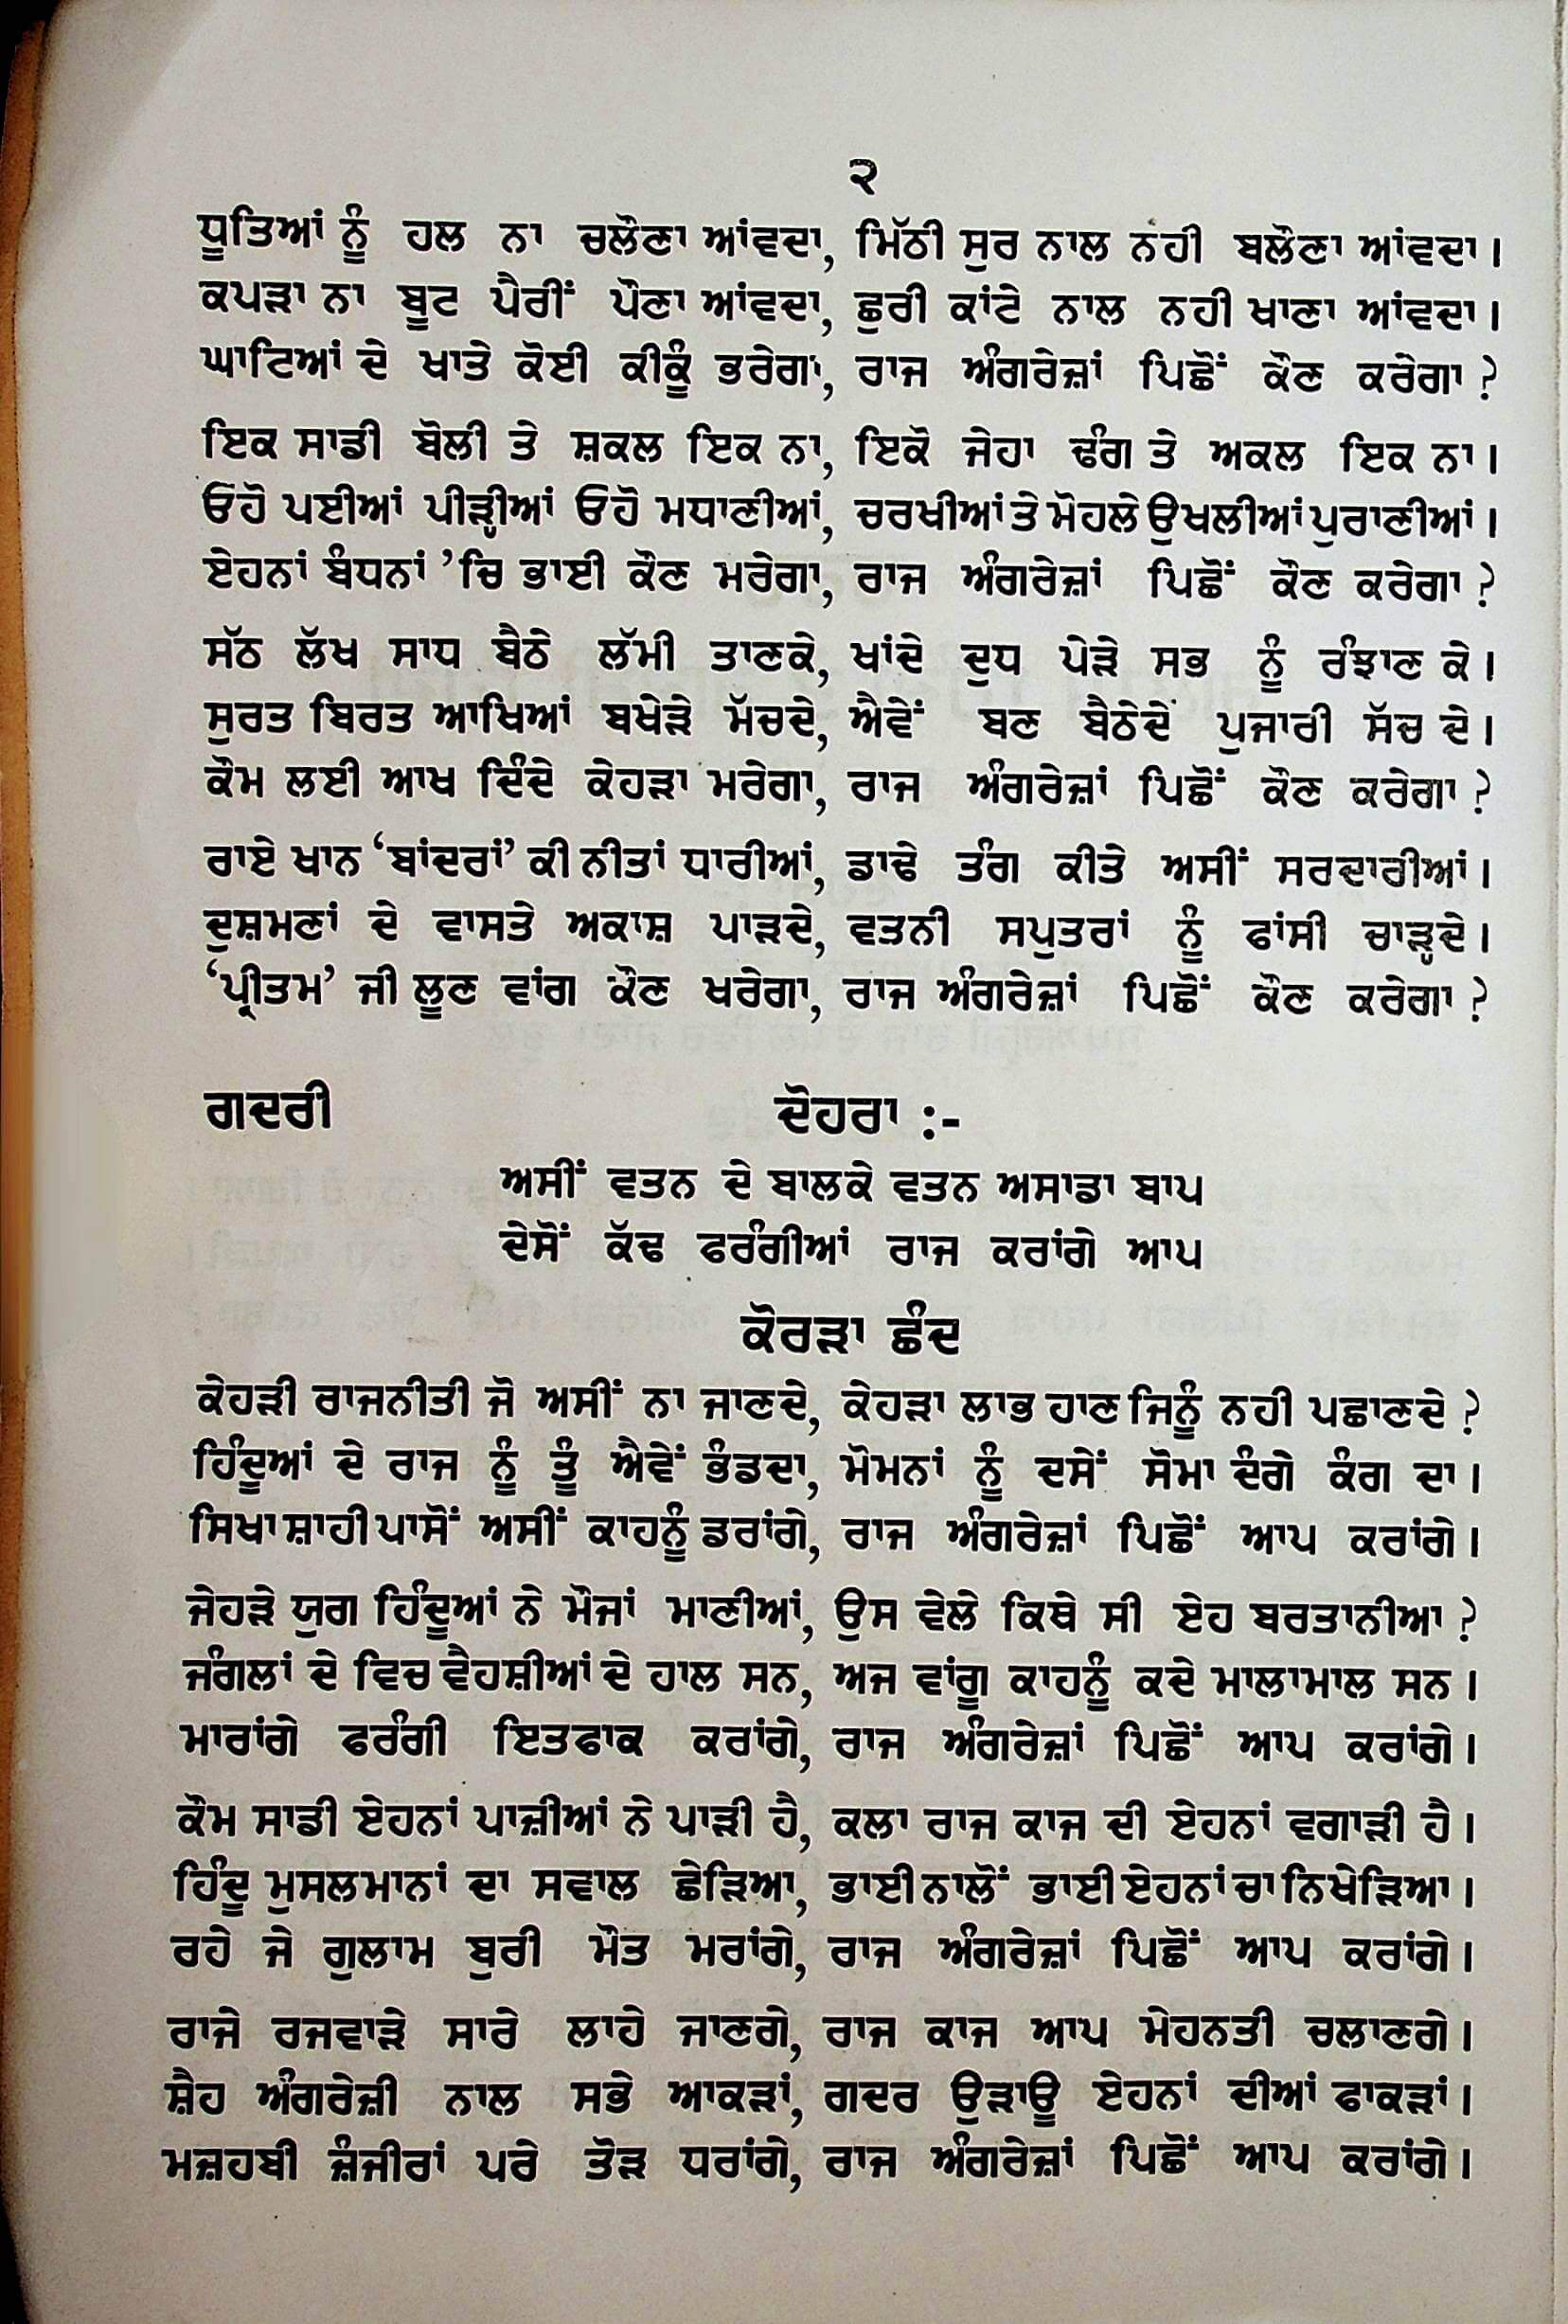 ੨
ਧੂਤਿਆਂ ਨੂੰ ਹਲ ਨਾ ਚਲੌਣਾ ਆਂਵਦਾ, ਮਿੱਠੀ ਸੁਰ ਨਾਲ ਨਹੀ ਬਲੌਣਾ ਆਂਵਦਾ।
ਕਪੜਾ ਨਾ ਬੂਟ ਪੈਰੀਂ ਪੌਣਾ ਆਂਵਦਾ, ਛੁਰੀ ਕਾਂਟੇ ਨਾਲ ਨਹੀ ਖਾਣਾ ਆਂਵਦਾ।
ਘਾਟਿਆਂ ਦੇ ਖਾਤੇ ਕੋਈ ਕੀਕੂੰ ਭਰੇਗਾ, ਰਾਜ ਅੰਗਰੇਜ਼ਾਂ ਪਿਛੋਂ ਕੌਣ ਕਰੇਗਾ?
ਇਕ ਸਾਡੀ ਬੋਲੀ ਤੇ ਸ਼ਕਲ ਇਕ ਨਾ, ਇਕੋ ਜੇਹਾ ਢੰਗ ਤੇ ਅਕਲ ਇਕ ਨਾ।
ਓਹੋ ਪਈਆਂ ਪੀੜ੍ਹੀਆਂ ਓਹੋ ਮਧਾਣੀਆਂ, ਚਰਖੀਆਂ ਤੇ ਮੋਹਲੇ ਉਖਲੀਆਂ ਪੁਰਾਣੀਆਂ।
ਏਹਨਾਂ ਬੰਧਨਾਂ ’ਚਿ ਭਾਈ ਕੌਣ ਮਰੇਗਾ, ਰਾਜ ਅੰਗਰੇਜ਼ਾਂ ਪਿਛੋਂ ਕੌਣ ਕਰੇਗਾ?
ਸੱਠ ਲੱਖ ਸਾਧ ਬੈਠੇ ਲੱਮੀ ਤਾਣਕੇ, ਖਾਂਦੇ ਦੁਧ ਪੇੜੇ ਸਭ ਨੂੰ ਰੰਝਾਣ ਕੇ।
ਸੁਰਤ ਬਿਰਤ ਆਖਿਆਂ ਬਖੇੜੇ ਮੱਚਦੇ, ਐਵੇਂ ਬਣ ਬੈਠੇਦੇਂ ਪੁਜਾਰੀ ਸੱਚ ਦੇ।
ਕੌਮ ਲਈ ਆਖ ਦਿੰਦੇ ਕੇਹੜਾ ਮਰੇਗਾ, ਰਾਜ ਅੰਗਰੇਜ਼ਾਂ ਪਿਛੋਂ ਕੌਣ ਕਰੇਗਾ?
ਰਾਏ ਖਾਨ ‘ਬਾਂਦਰਾਂ’ ਕੀ ਨੀਤਾਂ ਧਾਰੀਆਂ, ਡਾਢੇ ਤੰਗ ਕੀਤੇ ਅਸੀਂ ਸਰਦਾਰੀਆਂ।
ਦੁਸ਼ਮਣਾਂ ਦੇ ਵਾਸਤੇ ਅਕਾਸ਼ ਪਾੜਦੇ, ਵਤਨੀ ਸਪੁਤਰਾਂ ਨੂੰ ਫਾਂਸੀ ਚਾੜ੍ਹਦੇ।
‘ਪ੍ਰੀਤਮ’ ਜੀ ਲੂਣ ਵਾਂਗ ਕੌਣ ਖਰੇਗਾ, ਰਾਜ ਅੰਗਰੇਜ਼ਾਂ ਪਿਛੋਂ ਕੌਣ ਕਰੇਗਾ?
ਗਦਰੀ ਦੋਹਰਾ :-
ਅਸੀਂ ਵਤਨ ਦੇ ਬਾਲਕੇ ਵਤਨ ਅਸਾਡਾ ਬਾਪ
ਦੇਸੋਂ ਕੱਢ ਫਰੰਗੀਆਂ ਰਾਜ ਕਰਾਂਗੇ ਆਪ
ਕੋਰੜਾ ਛੰਦ
ਕੇਹੜੀ ਰਾਜਨੀਤੀ ਜੋ ਅਸੀਂ ਨਾ ਜਾਣਦੇ, ਕੇਹੜਾ ਲਾਭ ਹਾਣ ਜਿਨੂੰ ਨਹੀ ਪਛਾਣਦੇ?
ਹਿੰਦੂਆਂ ਦੇ ਰਾਜ ਨੂੰ ਤੂੰ ਐਵੇਂ ਭੰਡਦਾ, ਮੋਮਨਾਂ ਨੂੰ ਦਸੇਂ ਸੋਮਾ ਦੰਗੇ ਕੰਗ ਦਾ।
ਸਿਖਾਸ਼ਾਹੀ ਪਾਸੋਂ ਅਸੀਂ ਕਾਹਨੂੰ ਡਰਾਂਗੇ, ਰਾਜ ਅੰਗਰੇਜ਼ਾਂ ਪਿਛੋਂ ਆਪ ਕਰਾਂਗੇ।
ਜੇਹੜੇ ਯੁਗ ਹਿੰਦੂਆਂ ਨੇ ਮੌਜਾਂ ਮਾਣੀਆਂ, ਉਸ ਵੇਲੇ ਕਿਥੇ ਸੀ ਏਹ ਬਰਤਾਨੀਆ?
ਜੰਗਲਾਂ ਦੇ ਵਿਚ ਵੈਹਸ਼ੀਆਂ ਦੇ ਹਾਲ ਸਨ, ਅਜ ਵਾਂਗੂ ਕਾਹਨੂੰ ਕਦੇ ਮਾਲਾਮਾਲ ਸਨ।
ਮਾਰਾਂਗੇ ਫਰੰਗੀ ਇਤਫਾਕ ਕਰਾਂਗੇ, ਰਾਜ ਅੰਗਰੇਜ਼ਾਂ ਪਿਛੋਂ ਆਪ ਕਰਾਂਗੇ।
ਕੌਮ ਸਾਡੀ ਏਹਨਾਂ ਪਾਜ਼ੀਆਂ ਨੇ ਪਾੜੀ ਹੈ, ਕਲਾ ਰਾਜ ਕਾਜ ਦੀ ਏਹਨਾਂ ਵਗਾੜੀ ਹੈ।
ਹਿੰਦੂ ਮੁਸਲਮਾਨਾਂ ਦਾ ਸਵਾਲ ਛੇੜਿਆ, ਭਾਈ ਨਾਲੋਂ ਭਾਈ ਏਹਨਾਂ ਚਾ ਨਿਖੇੜਿਆ।
ਰਹੇ ਜੇ ਗੁਲਾਮ ਬੁਰੀ ਮੌਤ ਮਰਾਂਗੇ, ਰਾਜ ਅੰਗਰੇਜ਼ਾਂ ਪਿਛੋਂ ਆਪ ਕਰਾਂਗੇ।
ਰਾਜੇ ਰਜਵਾੜੇ ਸਾਰੇ ਲਾਹੇ ਜਾਣਗੇ, ਰਾਜ ਕਾਜ ਆਪ ਮੇਹਨਤੀ ਚਲਾਣਗੇ।
ਸ਼ੈਹ ਅੰਗਰੇਜ਼ੀ ਨਾਲ ਸਭੇ ਆਕੜਾਂ, ਗਦਰ ਉੜਾਊ ਏਹਨਾਂ ਦੀਆਂ ਫਾਕੜਾਂ।
ਮਜ਼ਹਬੀ ਜ਼ੰਜੀਰਾਂ ਪਰੇ ਤੋੜ ਧਰਾਂਗੇ, ਰਾਜ ਅੰਗਰੇਜ਼ਾਂ ਪਿਛੋਂ ਆਪ ਕਰਾਂਗੇ।